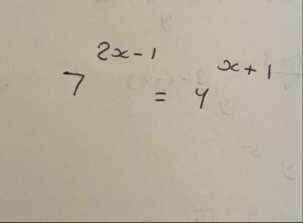 7^{2x-1} = 4^{x+1}